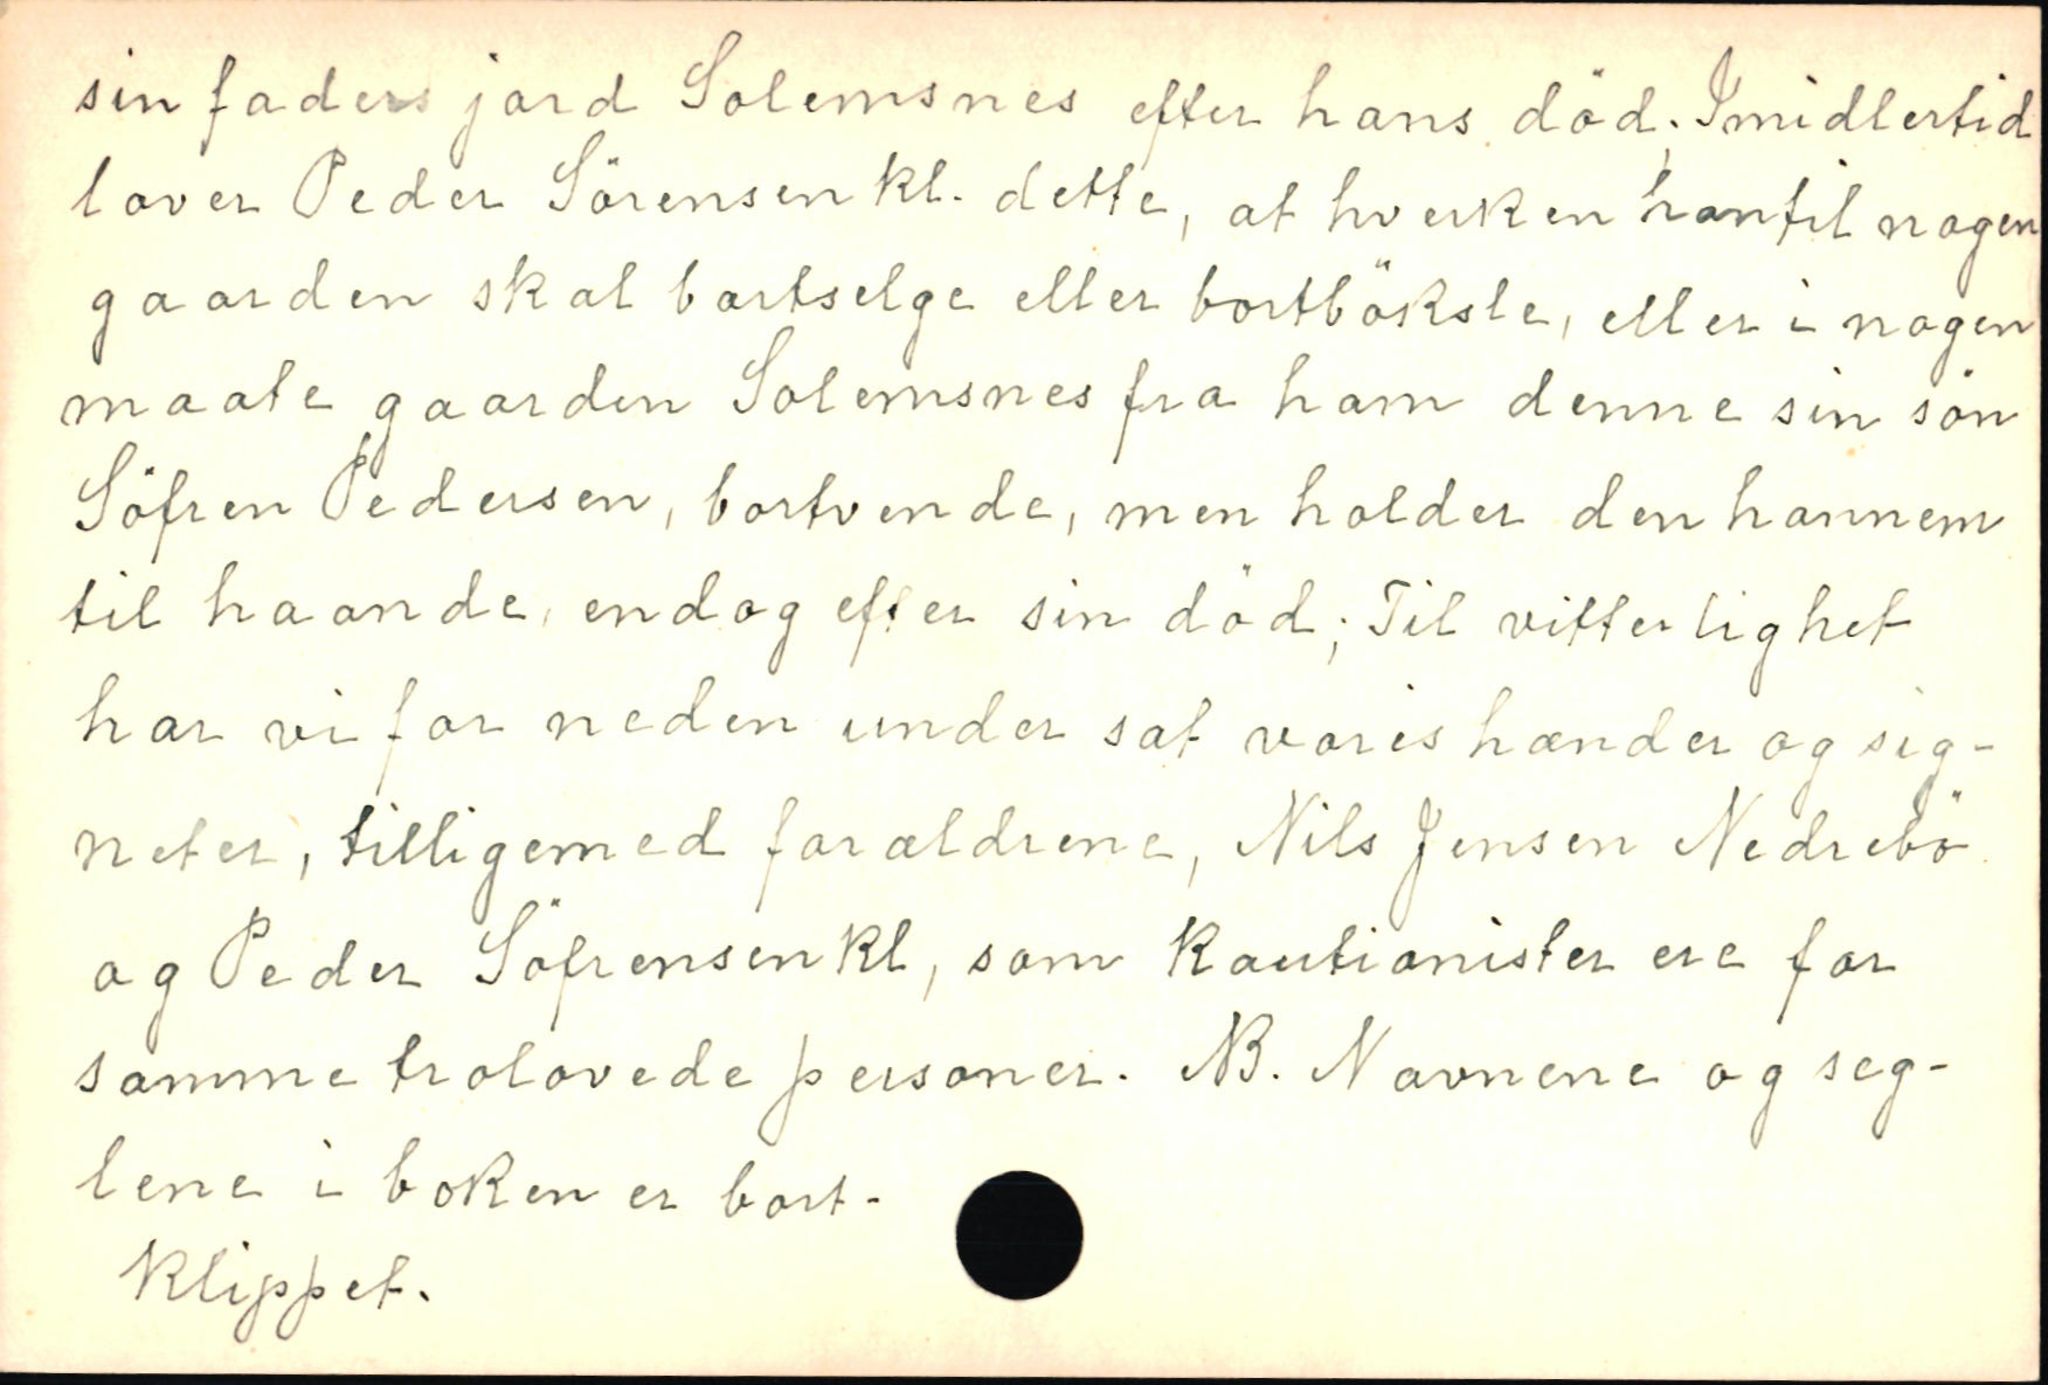 sin faders jord Solemsnes efter hans död. Imidlertid
lover Peder Sörensen kl. dette, at hverken han til nogen
gaarden skal bortselge eller bortböksle, eller i nogen
maate gaarden Solemsnes fra ham denne sin sön
Söfren Pedersen, bortvende, men holder den hannem
til haande, endog efter sin död; Til vitterlighet
har vi for neden under sat voris hænder og sig-
neter, tilligemed forældrene, Nils Jensen Nedrebö
og Peder Söfrensen kl, som kautionister ere for
samme trolovede personer. NB. Navnene og seg-
lene i boken er bort-
klippet.